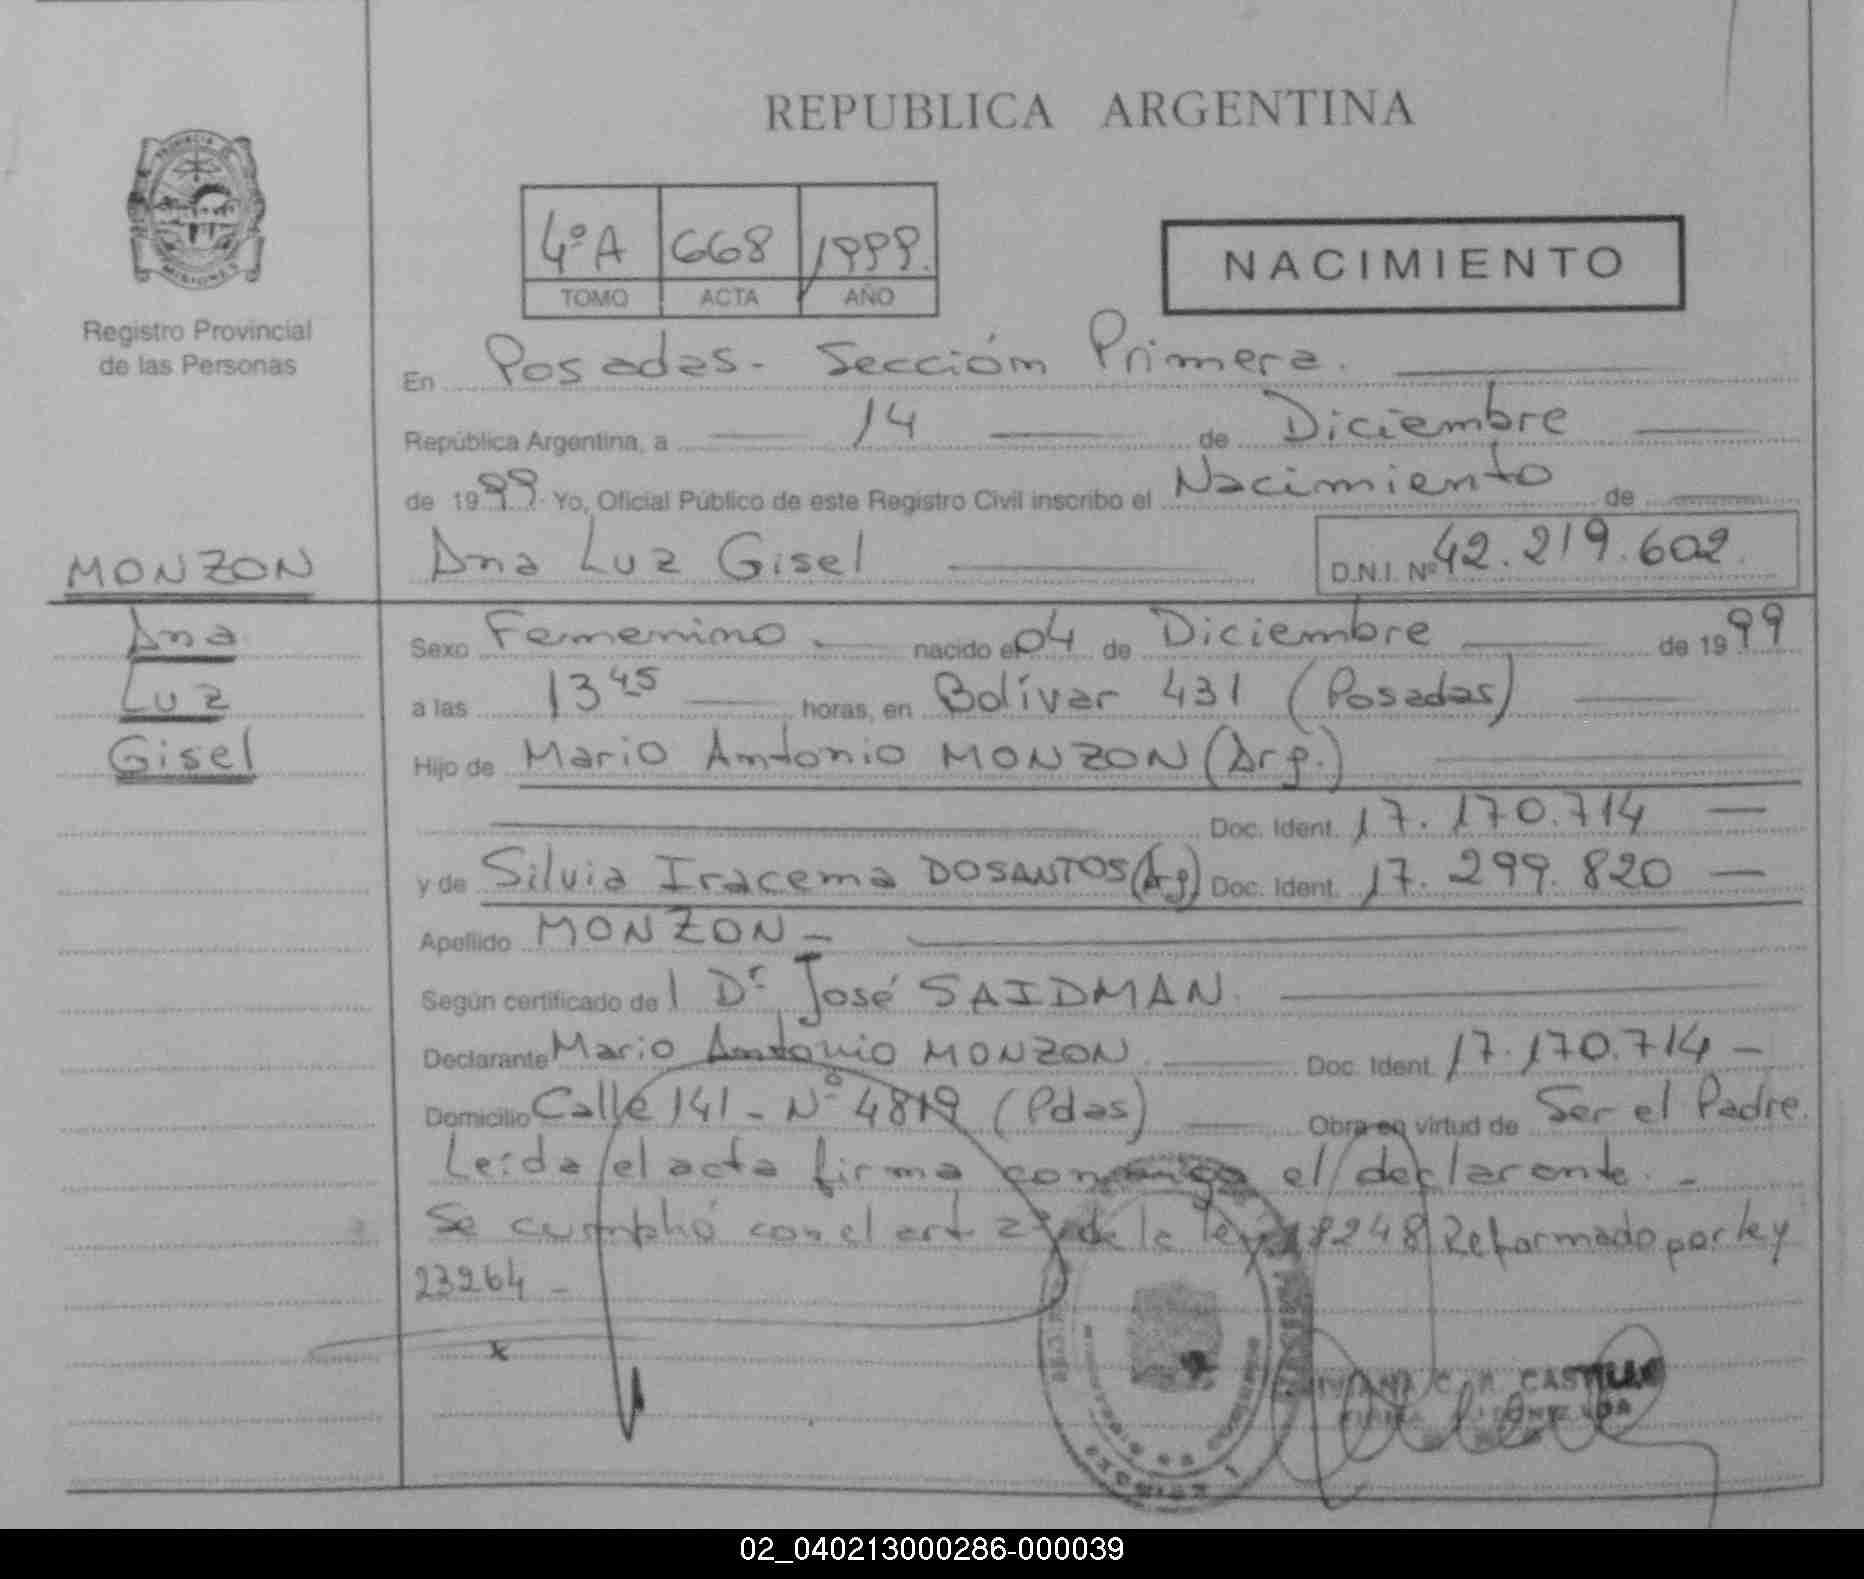 REPUBLICA ARGENTINA
PROVINCIA DE
MISIONES
Registro Provincial
de las Personas
4ºA 668 1999.
TOMO ACTA AÑO
NACIMIENTO
En Posadas - Sección Primera.
República Argentina, a 14 de Diciembre
de 1999. Yo, Oficial Público de este Registro Civil inscribo el Nacimiento de
MONZON Ana Luz Gisel D.N.I. Nº 42.219.602.
Ana Sexo Femenino nacido el 04 de Diciembre de 1999
Luz a las 13 45 horas, en Bolívar 431 (Posadas)
Gisel Hijo de Mario Antonio MONZON (Arg.)
Doc. Ident. 17.170.714 —
y de Silvia Iracema DOSANTOS (Arg) Doc. Ident. 17.299.820 —
Apellido MONZON —
Según certificado del Dr José SAIDMAN.
Declarante Mario Antonio MONZON Doc. Ident. 17.170.714 —
Domicilio Calle 141 - Nº 4819 (Pdas) Obra en virtud de Ser el Padre.
Leída el acta firma conmigo el declarante. -
Se cumplió con el art 2º de la ley 18248 Reformado por ley
23264 -
x
C. R. CASTILLO
02_040213000286-000039